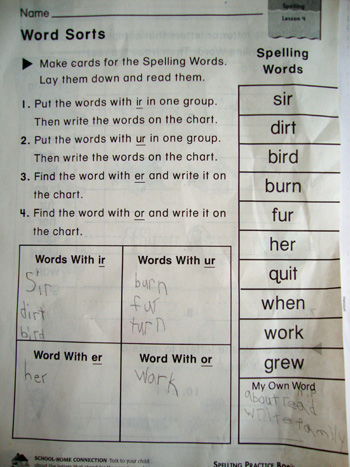 Name
Spelling
Lesson 4
Word Sorts
▶ Make cards for the Spelling Words.
Lay them down and read them.
1. Put the words with ir in one group.
Then write the words on the chart.
2. Put the words with ur in one group.
Then write the words on the chart.
3. Find the word with er and write it on
the chart.
4. Find the word with or and write it on
the chart.
Words With ir
Sir
dirt
bird
Words With ur
burn
fur
turn
Word With er
her
Word With or
work
Spelling
Words
sir
dirt
bird
burn
fur
her
quit
when
work
grew
My Own Word
about read
family
SCHOOL-HOME CONNECTION Talk to your child
SPELLING PRACTICE